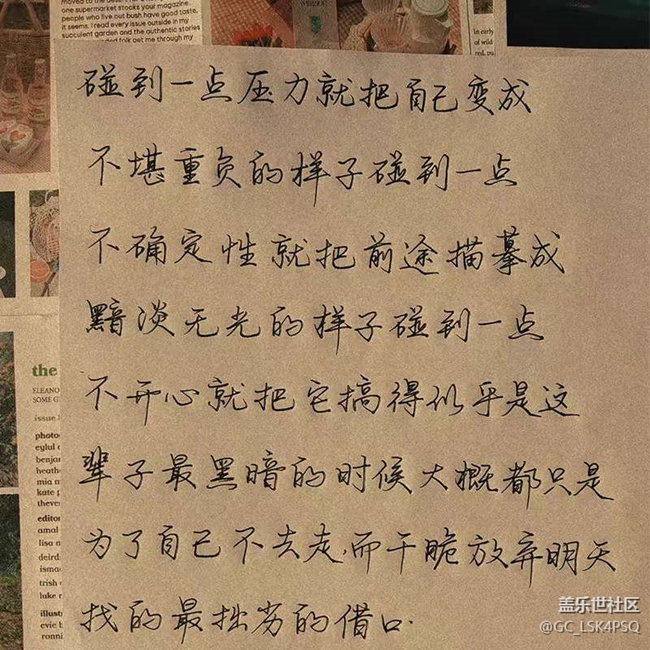 one supermarket stocks your magazine.
people who live out bush have good taste,
it seems. I read every issue outside in my
succulent garden and the authentic stories
the
ELEANO
SOME G
issue
photo
eylul
benja
heath
mia
kate p
theve
editor
amal
lisa
deird
isma
trish
luke
illust
evie b
ronni
in early
of wild
碰到一点压力就把自己变成
不堪重负的样子碰到一点
不确定性就把前途描摹成
黯淡无光的样子碰到一点
不开心就把它搞得似乎是这
辈子最黑暗的时候大概都只是
为了自己不去走,而干脆放弃明天
找的最拙劣的借口.
盖乐世社区
@GC_LSK4PSQ